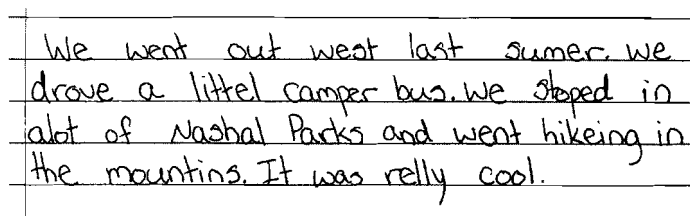 We went out west last sumer. We
drove a littel camper bus. We stoped in
alot of Nashal Parks and went hikeing in
the mountins. It was relly cool.